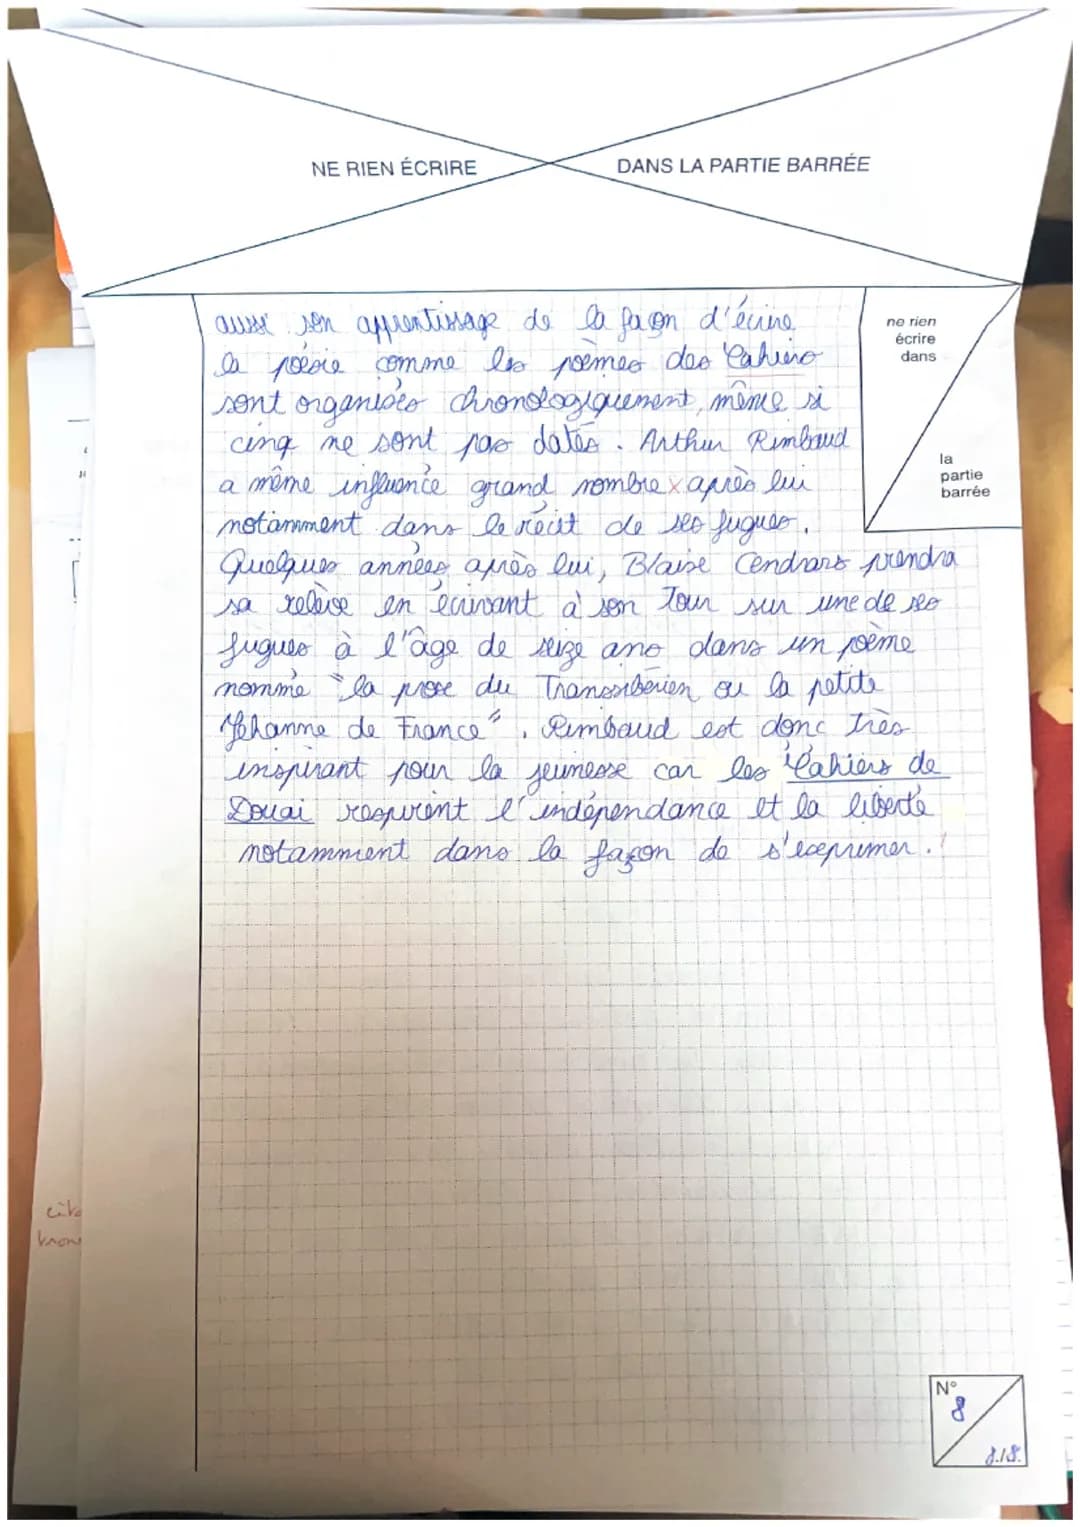 NE RIEN ÉCRIRE DANS LA PARTIE BARRÉE
ne rien
écrire
dans
la
partie
barrée
aussi son apprentissage de la façon d'écrire
la poésie comme les poèmes des Cahiers
sont organisés chronologiquement, même si
cinq ne sont pas datés. Arthur Rimbaud
a même influencé grand nombre x après lui
notamment dans le récit de ses fugues.
Quelques années après lui, Blaise Cendrars prendra
sa relève en écrivant à son Tour sur une de ses
fugues à l'âge de seize ans dans un poème
nommé "la prose du Transsibérien ou la petite
Jehanne de France". Rimbaud est donc très
inspirant pour la jeunesse car les Cahiers de
Douai respirent l'indépendance et la liberté
notamment dans la façon de s'exprimer.
N°
8
8/8.